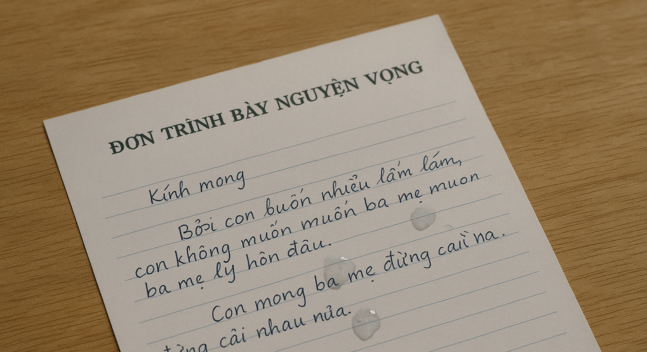 ĐƠN TRÌNH BÀY NGUYỆN VỌNG
Kính mong
Bởi con buốn nhiều lắm lắm,
con không muốn muốn ba mẹ muon
ba mẹ ly hôn đâu.
Con mong ba mẹ đừng na.
cãi nhau nủa.